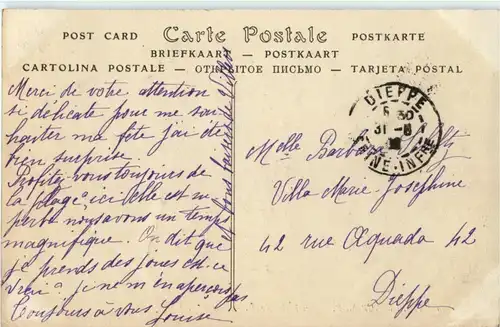 POST CARD Carte Postale POSTKARTE
BRIEFKAART — POSTKAART
CARTOLINA POSTALE — ОТКРЫТОЕ ПИСЬМО — TARJETA POSTAL
Merci de votre attention
si délicate pour me sou
haiter ma fête j'ai été
bien surprise.
Profitez vous toujours de
la plage, ici elle est su
perbe nous avons un temps
magnifique. On dit que
je prends des joues est-ce
vrai? je ne m'en aperçois pas
Toujours à vous Louise
et font baisers de
DIEPPE
6 30
31 - 8
SEINE-INFRE
Melle Barb
Villa Marie Josephine
42 rue Aguado 42
Dieppe